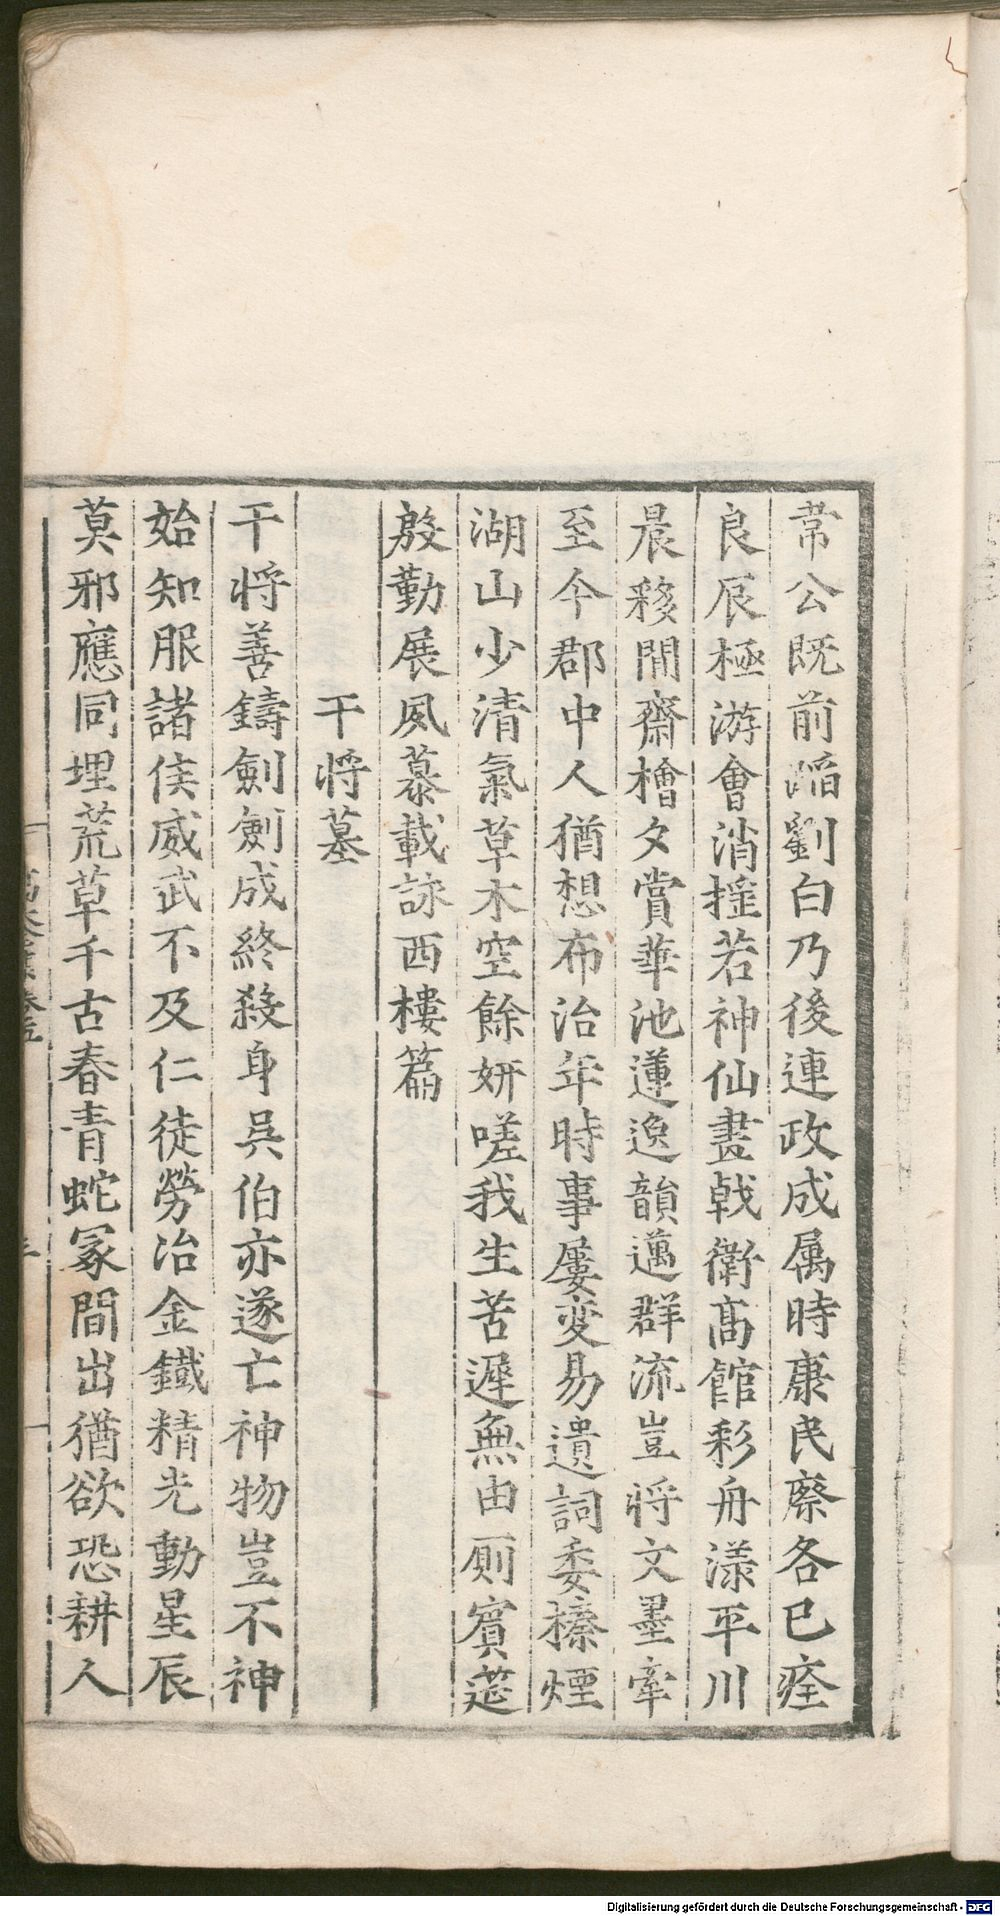 常公既前蹈劉白乃後連政成属時康民瘵各已痊
良辰極游會消摇若神仙畫戟衛髙館彩舟漾平川
晨移閒齋檜夕賞華池蓮逸韻邁群流豈將文墨牽
至今郡中人猶想布治年時事屢変易遺詞委榛煙
湖山少清氣草木空餘妍嗟我生苦遲無由厠賓莚
殷勤展風慕載詠西樓篇
干將墓
干將善鑄劍劍成終殺身吳伯亦遂亡神物豈不神
始知服諸侯威武不及仁徒勞冶金鐵精光動星辰
莫邪應同埋荒草千古春青蛇冢間出猶欲恐耕人
Digitalisierung gefördert durch die Deutsche Forschungsgemeinschaft - DFG